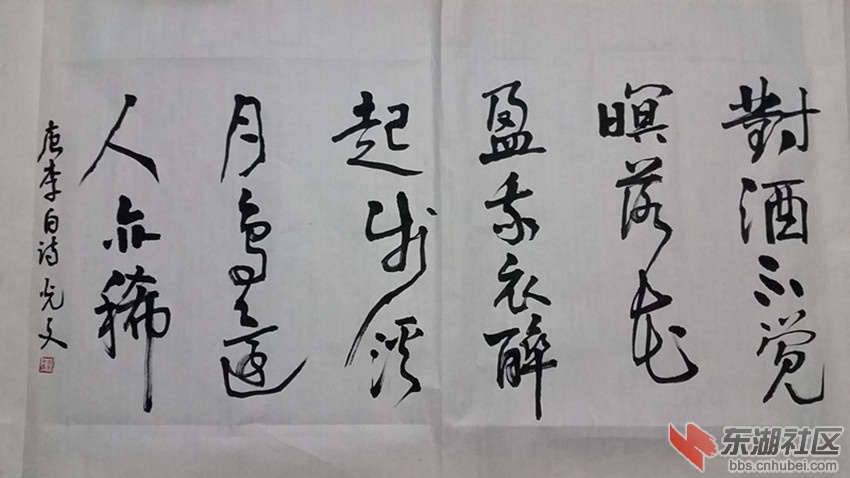 對酒不覺
暝落花
盈我衣醉
起步溪
月鳥還
人亦稀
唐李白诗 光文
东湖社区
bbs.cnhubei.com